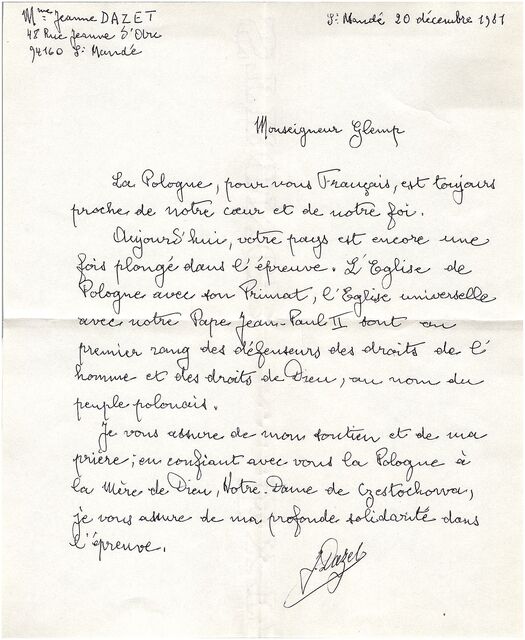 Mme Jeanne DAZET
48 Rue Jeanne d'Arc
94160 St Mandé
St Mandé 20 décembre 1981
Monseigneur Glemp
La Pologne, pour nous Français, est toujours
proche de notre cœur et de notre foi.
Aujourd'hui, votre pays est encore une
fois plongé dans l'épreuve. L'Eglise de
Pologne avec son Primat, l'Eglise universelle
avec notre Pape Jean-Paul II sont au
premier rang des défenseurs des droits de l'
homme et des droits de Dieu, au nom du
peuple polonais.
Je vous assure de mon soutien et de ma
prière ; en confiant avec vous la Pologne à
la Mère de Dieu, Notre-Dame de Czestochowa,
je vous assure de ma profonde solidarité dans
l'épreuve.
J. Dazet